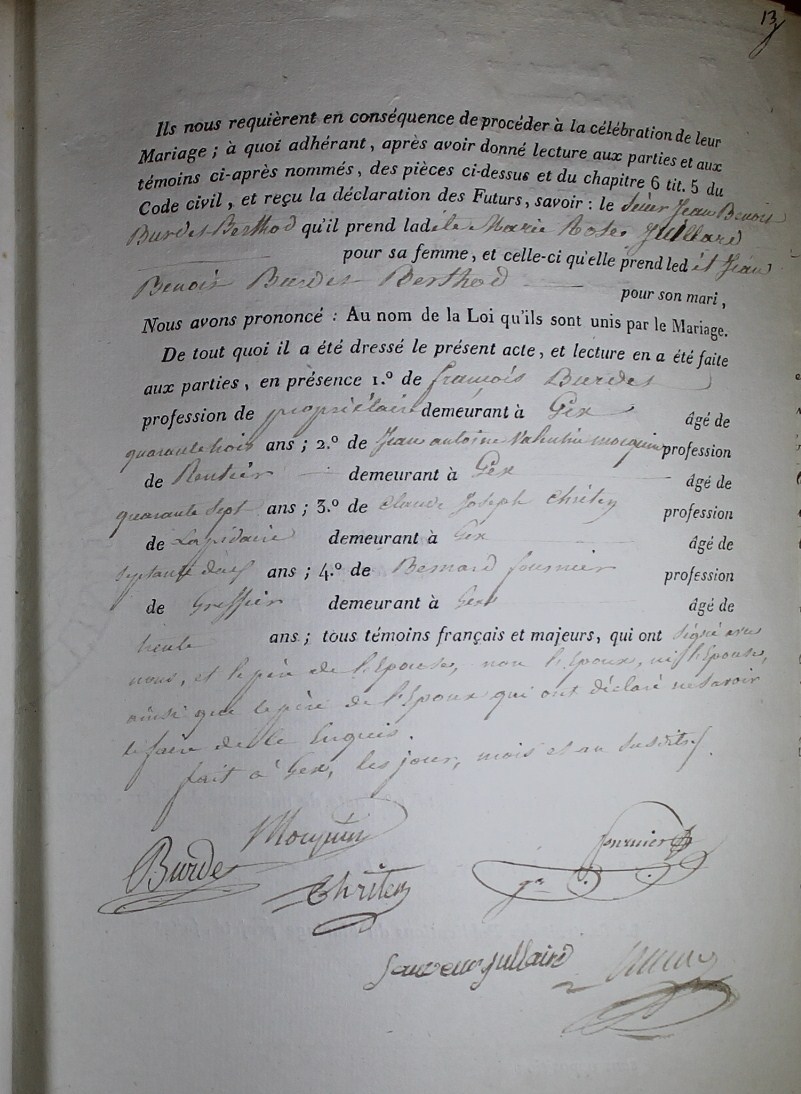 13
Ils nous requièrent en conséquence de procéder à la célébration de leur
Mariage ; à quoi adhérant, après avoir donné lecture aux parties et aux
témoins ci-après nommés, des pièces ci-dessus et du chapitre 6 tit. 5 du
Code civil, et reçu la déclaration des Futurs, savoir : le Sieur Jean Benoit
Burdet Berthod qu'il prend ladite Marie Jullard
pour sa femme, et celle-ci qu'elle prend ledit Jean
Benoit Burdet Berthod pour son mari,
Nous avons prononcé : Au nom de la Loi qu'ils sont unis par le Mariage.
De tout quoi il a été dressé le présent acte, et lecture en a été faite
aux parties, en présence 1.º de françois Burdet
profession de propriétaire demeurant à Gex âgé de
quarante trois ans ; 2.º de Jean antoine Valentin mocquin profession
de Rentier demeurant à Gex âgé de
quarante sept ans ; 3.º de Claude Joseph Chrîten profession
de Lapidaire demeurant à Gex âgé de
septante deux ans ; 4.º de Bernard fournier profession
de Greffier demeurant à Gex âgé de
trente ans ; tous témoins français et majeurs, qui ont signé avec
nous, et le père de l'Epouse, non l'Epoux, ni l'Epouse,
ainsi que le père de l'Epoux qui ont déclaré ne savoir
le faire de ce Enquis.
fait à Gex, les jour, mois et an susdits.
Mocquin
Burdet
fournier
Chrîten
Sauveur Jullard